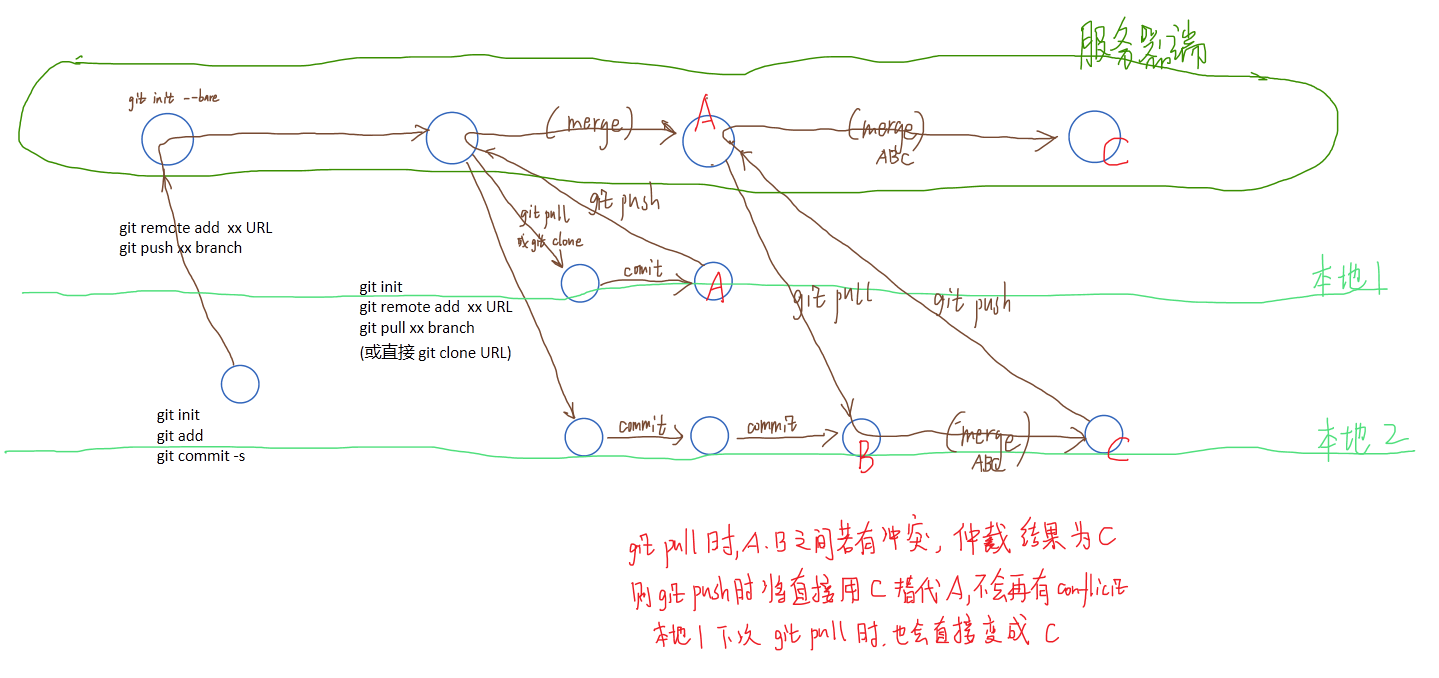 服务器端
git init --bare
(merge)
A
(merge)
ABC
C
git remote add  xx URL
git push xx branch
git pull
或git clone
git push
comit
A
本地1
git init
git remote add  xx URL
git pull xx branch
(或直接 git clone URL)
git pull
git push
git init
git add
git commit -s
commit
commit
B
(merge)
ABC
C
本地2
git pull 时,A.B之间若有冲突, 仲裁结果为C
则git push时将直接用C替代A,不会再有conflicit
本地1下次 git pull 时.也会直接变成 C